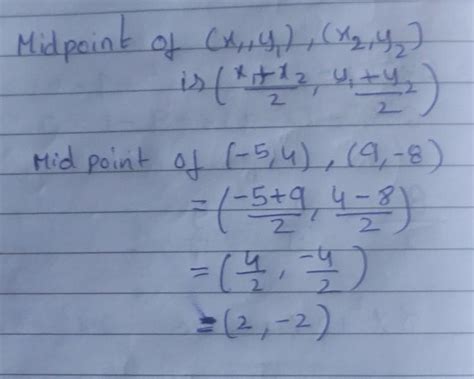 Midpoint of (x₁, y₁), (x₂, y₂)
is (x₁+x₂/2, y₁+y₂/2)
Mid point of (-5,4), (9,-8)
= (-5+9/2, 4-8/2)
= (4/2, -4/2)
= (2, -2)